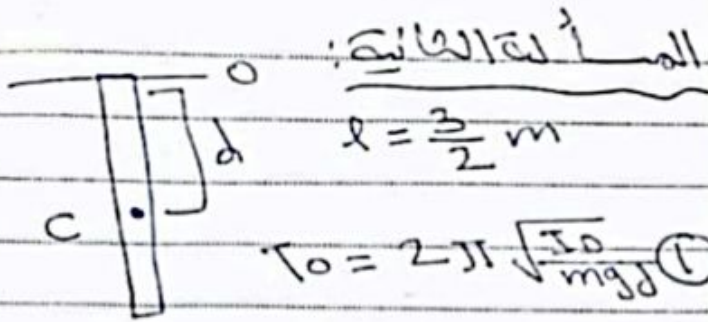 المسألة الثانية:
O
d
l = 3/2 m
C
T0 = 2π √(I0/mgd) ①